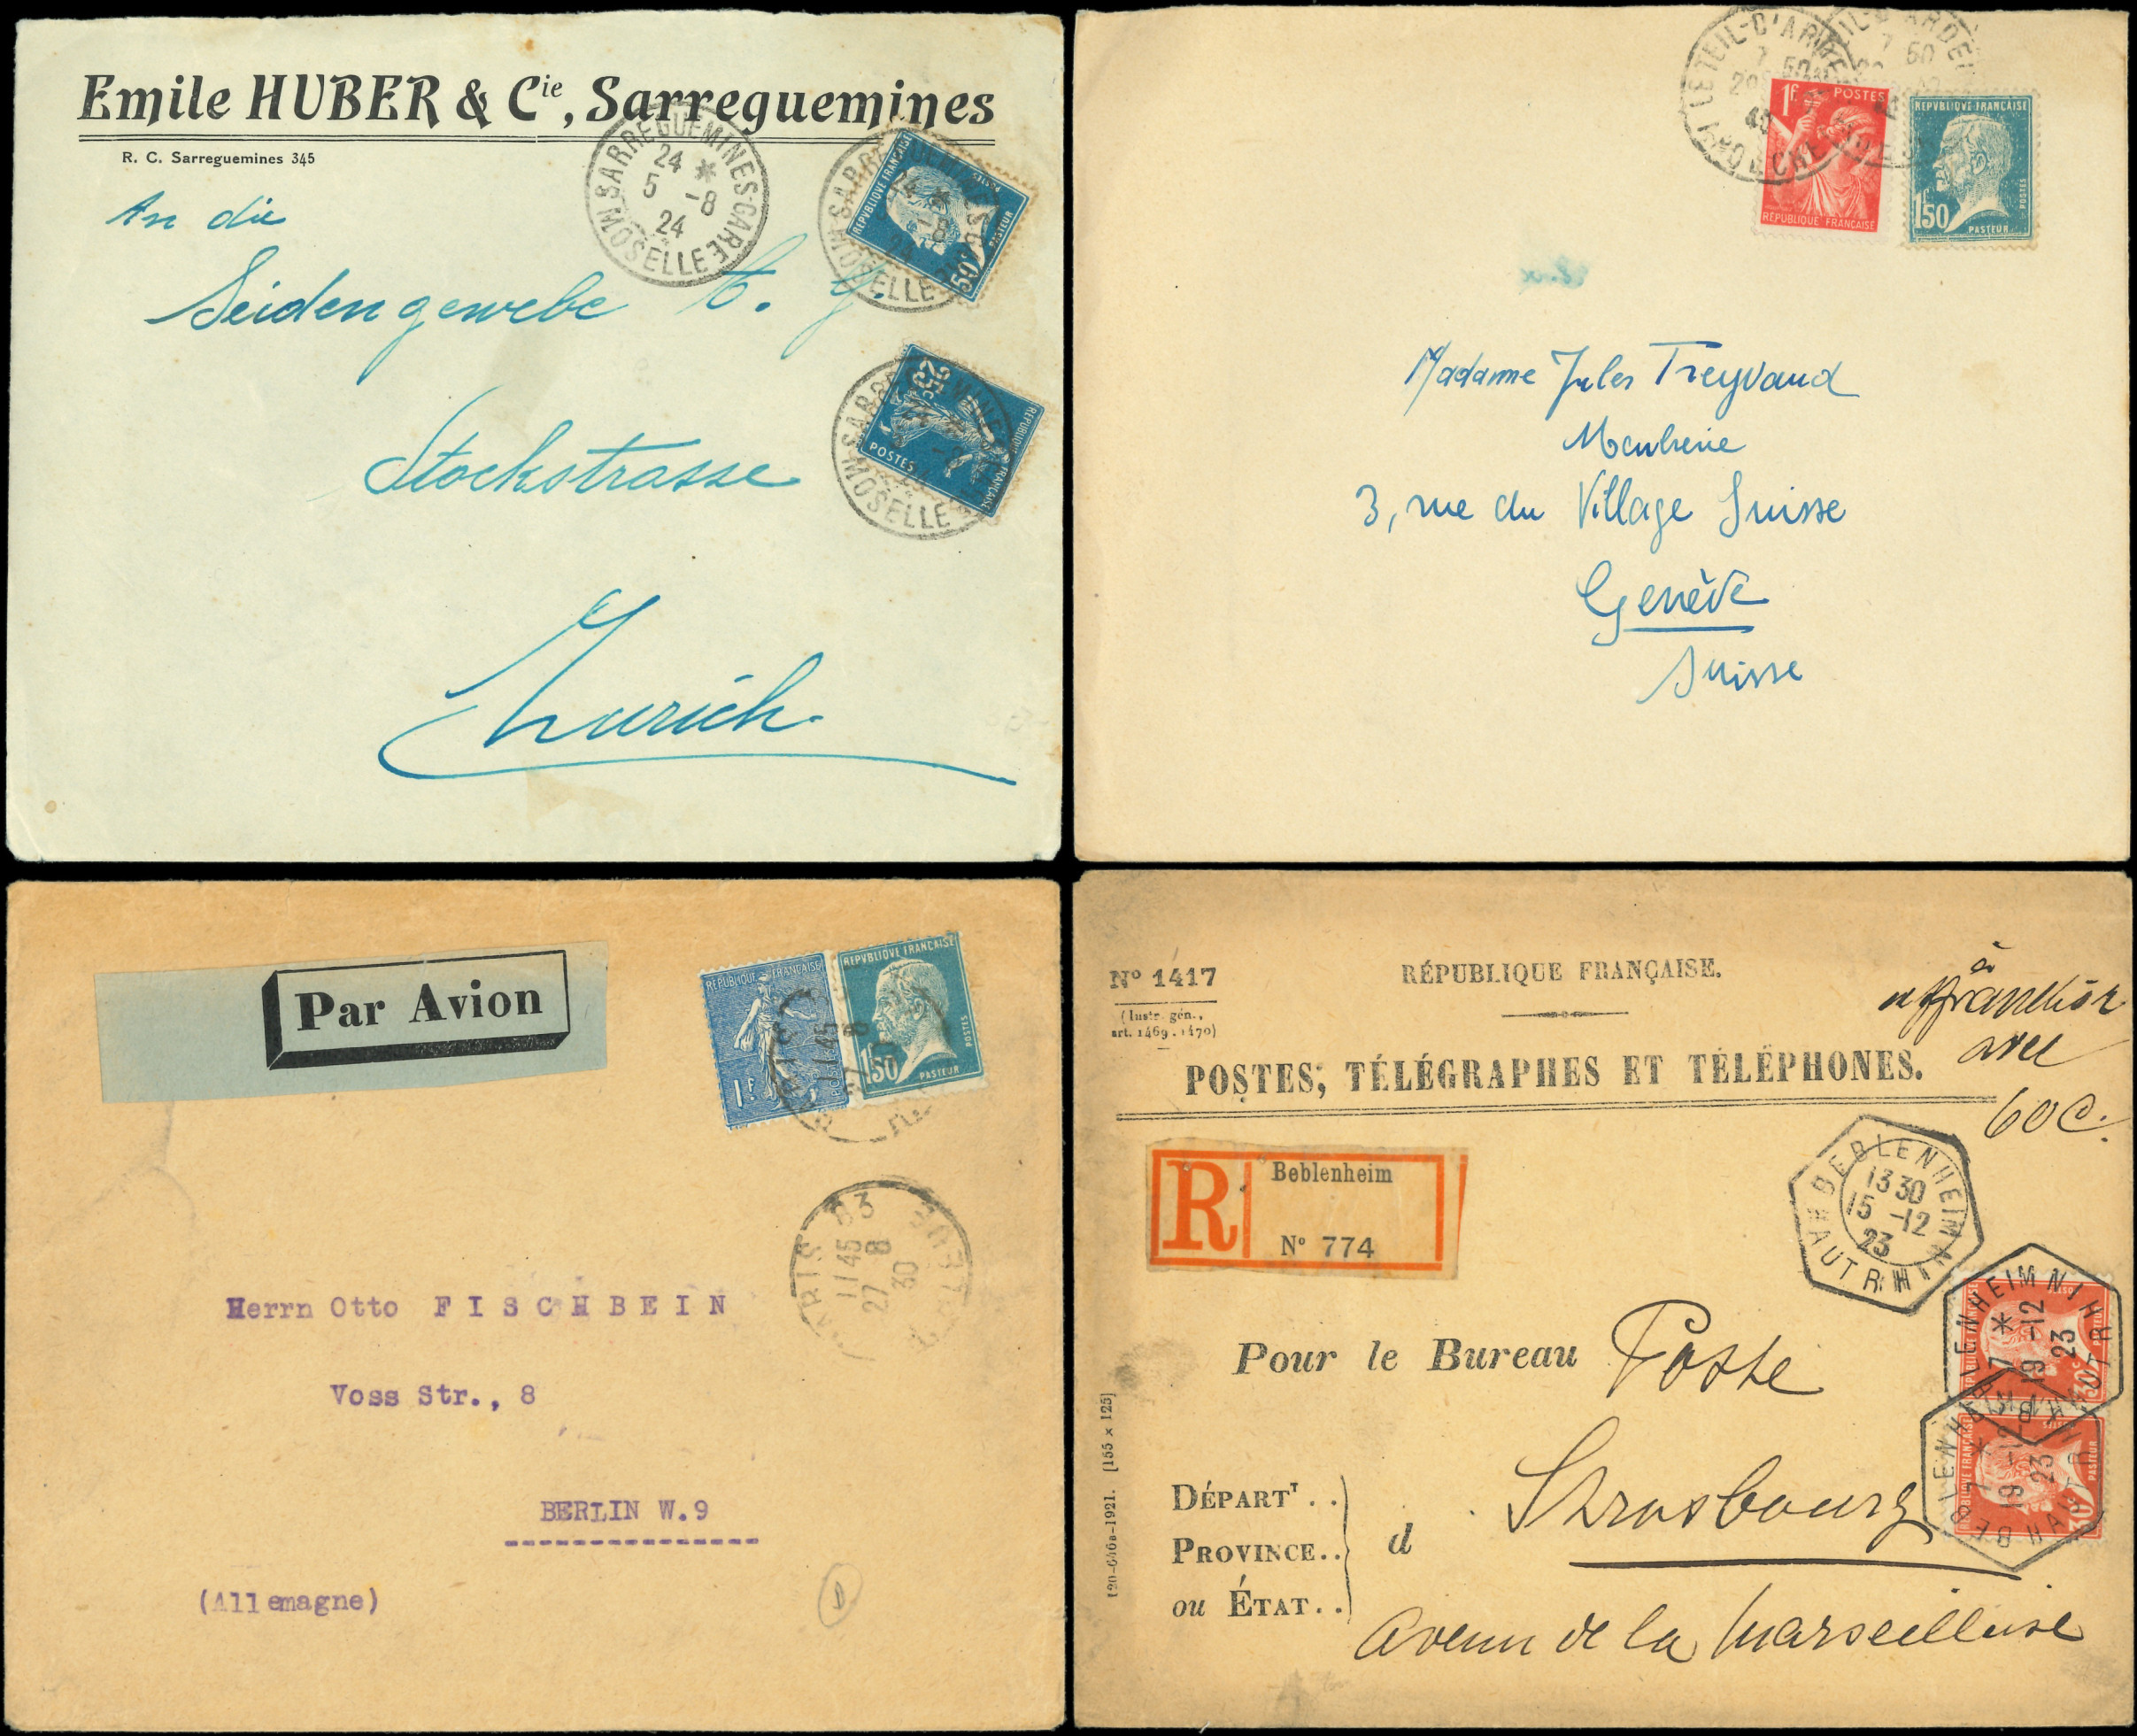 Emile HUBER & Cie, Sarreguemines
R. C. Sarreguemines 345
SARREGUEMINES-GARE
24 *
5 -8
24
MOSELLE
REPVBLIQVE FRANÇAISE
PASTEUR
SARREGUEMINES
MOSELLE
25c
POSTES
RÉPUBLIQUE FRANÇAISE
SARREGUEMINES
MOSELLE
An die
Seidengewebe A. G.
Stockstrasse
Zurich
LE TEIL-D'ARDECHE
7 50
ARDECHE
1F POSTES
RÉPUBLIQUE FRANÇAISE
REPVBLIQVE FRANÇAISE
1F50
POSTES
PASTEUR
Madame Jules Treyvaud
3, rue du Village Suisse
Genève
Suisse
Par Avion
RÉPUBLIQUE FRANÇAISE
1F
REPVBLIQVE FRANÇAISE
1F50
POSTES
PASTEUR
PARIS 83
11 45
27 8
30
Herrn Otto FISCHBEIN
Voss Str., 8
BERLIN W.9
(Allemagne)
D
No 1417
(Instr. gén.,
art. 1469-1470)
RÉPUBLIQUE FRANÇAISE.
POSTES, TÉLÉGRAPHES ET TÉLÉPHONES.
à
affranchir
avec
60 c.
R
Beblenheim
No 774
BEBLENHEIM
13 30
15 -12
23
HAUT RHIN
BEBLENHEIM
7 *
19 -12
23
HAUT RHIN
30c
PASTEUR
BEBLENHEIM
7 *
19 -12
23
HAUT RHIN
REPVBLIQVE FRANÇAISE
30c
PASTEUR
Pour le Bureau Poste
DÉPARTT..
PROVINCE..
ou ÉTAT..
d Strasbourg
Avenue de la Marseillaise
120-646B-1921. [155 × 125]